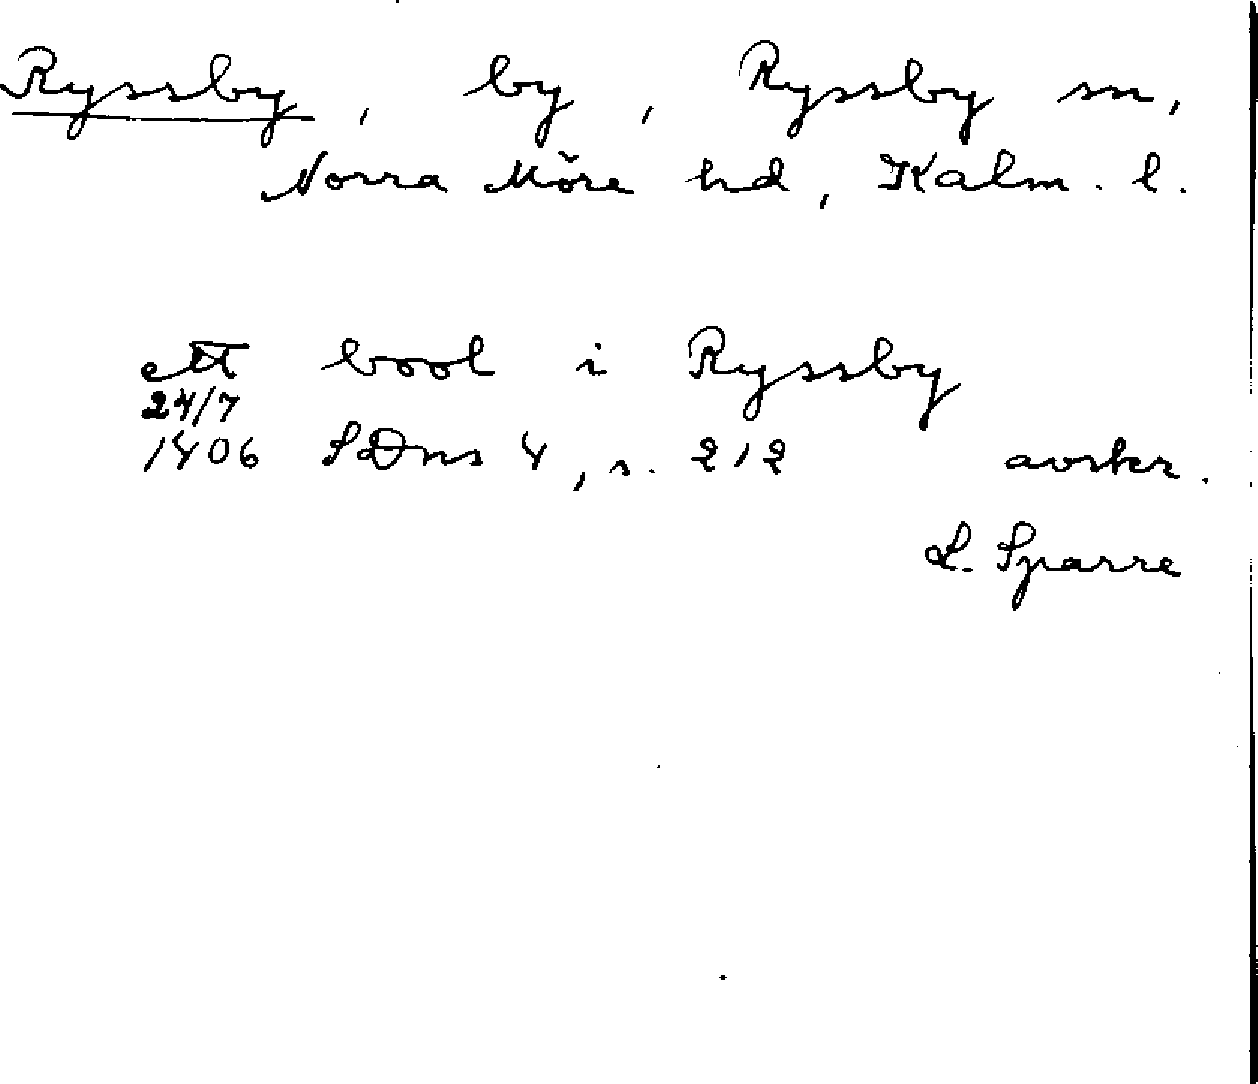 Ryssby, by, Ryssby sn,
Norra Möre hd, Kalm. l.
ett bool i Ryssby
24/7
1406 SDns 4, s. 212 avskr.
L. Sparre